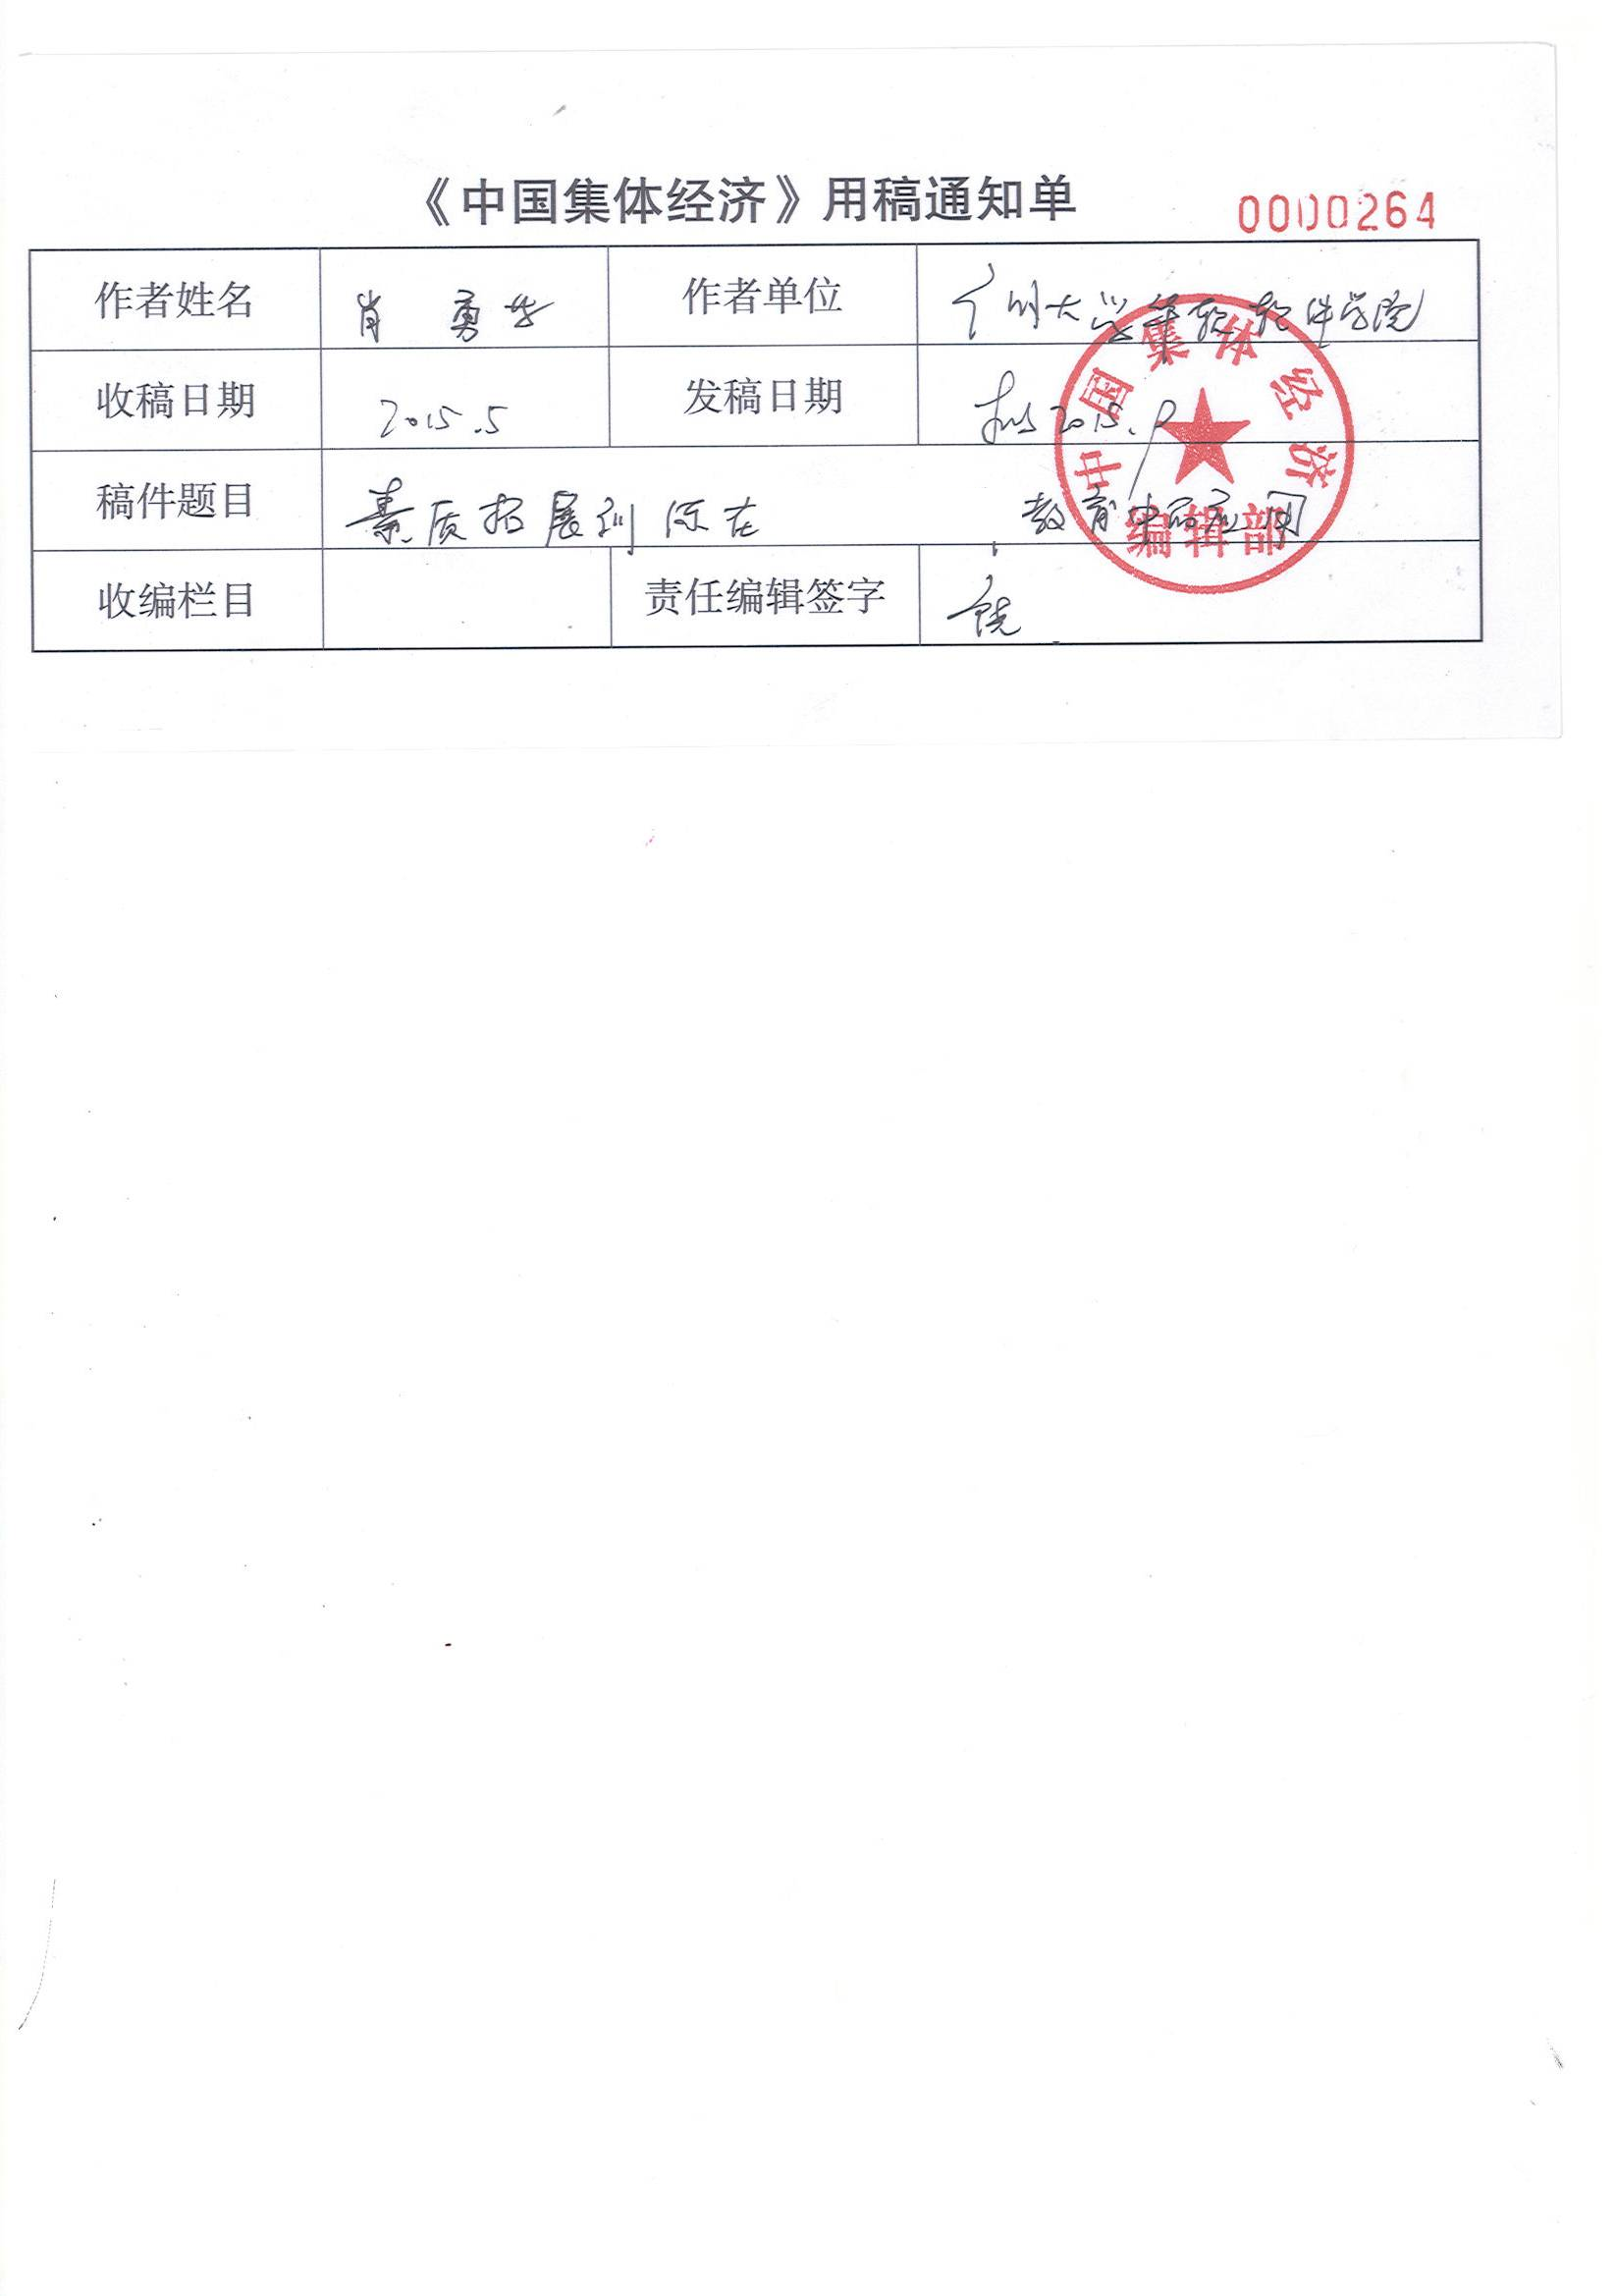 《中国集体经济》用稿通知单 0000264
作者姓名 肖勇华 作者单位 广州大学华软软件学院
收稿日期 2015.5 发稿日期 拟 2015.9
稿件题目 素质拓展训练在 教育中的应用
收编栏目 责任编辑签字
中国集体经济
编辑部